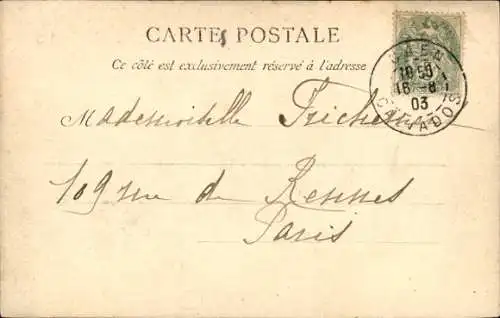 CARTE POSTALE
Ce côté est exclusivement réservé à l'adresse
CAEN
18 50
16 - 8
03
CALVADOS
Mademoiselle
109 rue de Rennes
Paris